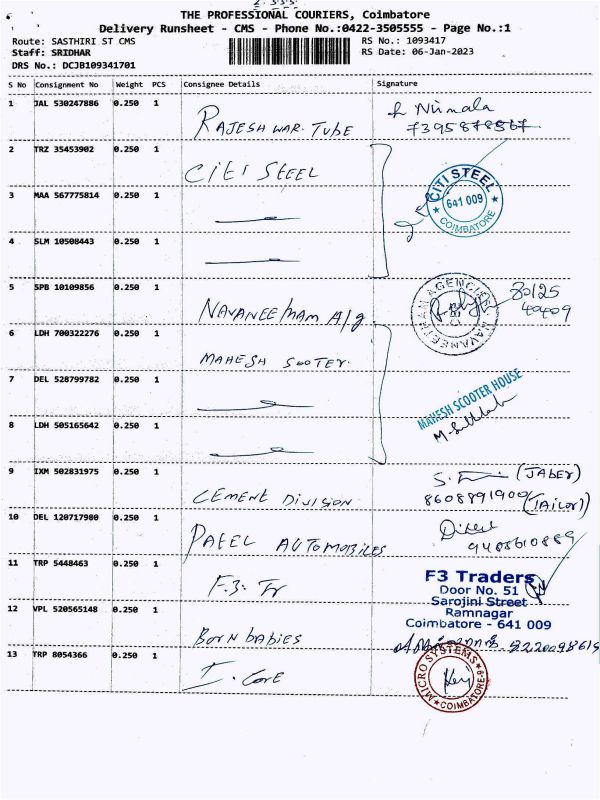 THE PROFESSIONAL COURIERS, Coimbatore
Delivery Runsheet - CMS - Phone No.:0422-3505555 - Page No.:1
Route: SASTHIRI ST CMS
Staff: SRIDHAR
DRS No.: DCJB109341701
RS No.: 1093417
RS Date: 06-Jan-2023
S No Consignment No Weight PCS Consignee Details Signature
1 JAL 530247886 0.250 1 RAJESHWAR. TUBE Nirmala
7395878567
2 TRZ 35453902 0.250 1 CITI STEEL
CITI STEEL
641 009
COIMBATORE
3 MAA 567775814 0.250 1
4 SLM 10508443 0.250 1
5 SPB 10109856 0.250 1 NAVANEETHAM A/g
NAVANEETHAM AGENCIES
80125
40409
6 LDH 700322276 0.250 1 MAHESH SCOOTER.
7 DEL 528799782 0.250 1
MAHESH SCOOTER HOUSE
8 LDH 505165642 0.250 1
9 IXM 502831975 0.250 1 CEMENT DIVISION (JABER)
8608891909 (TAILOR)
10 DEL 120717980 0.250 1 PATEL AUTOMOBILES
9488610889
11 TRP 5448463 0.250 1 F.3. Tr
F3 Traders
Door No. 51
Sarojini Street
Ramnagar
Coimbatore - 641 009
12 VPL 520565148 0.250 1 Born babies
13 TRP 8054366 0.250 1 I. Core
MICRO SYSTEMS
COIMBATORE-9